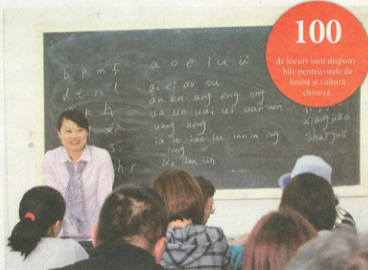 100
de locuri sunt disponi-
bile pentru orele de
limbă și cultură
chineză.
b p m f a o e i u ü
d t n l ai ei ao ou
an en ang eng ong
k h ua uo uai uei uan uen
uang ueng
ia ie iao iou ian in ing
iong
h r üe üan ün
xiāngjiāo